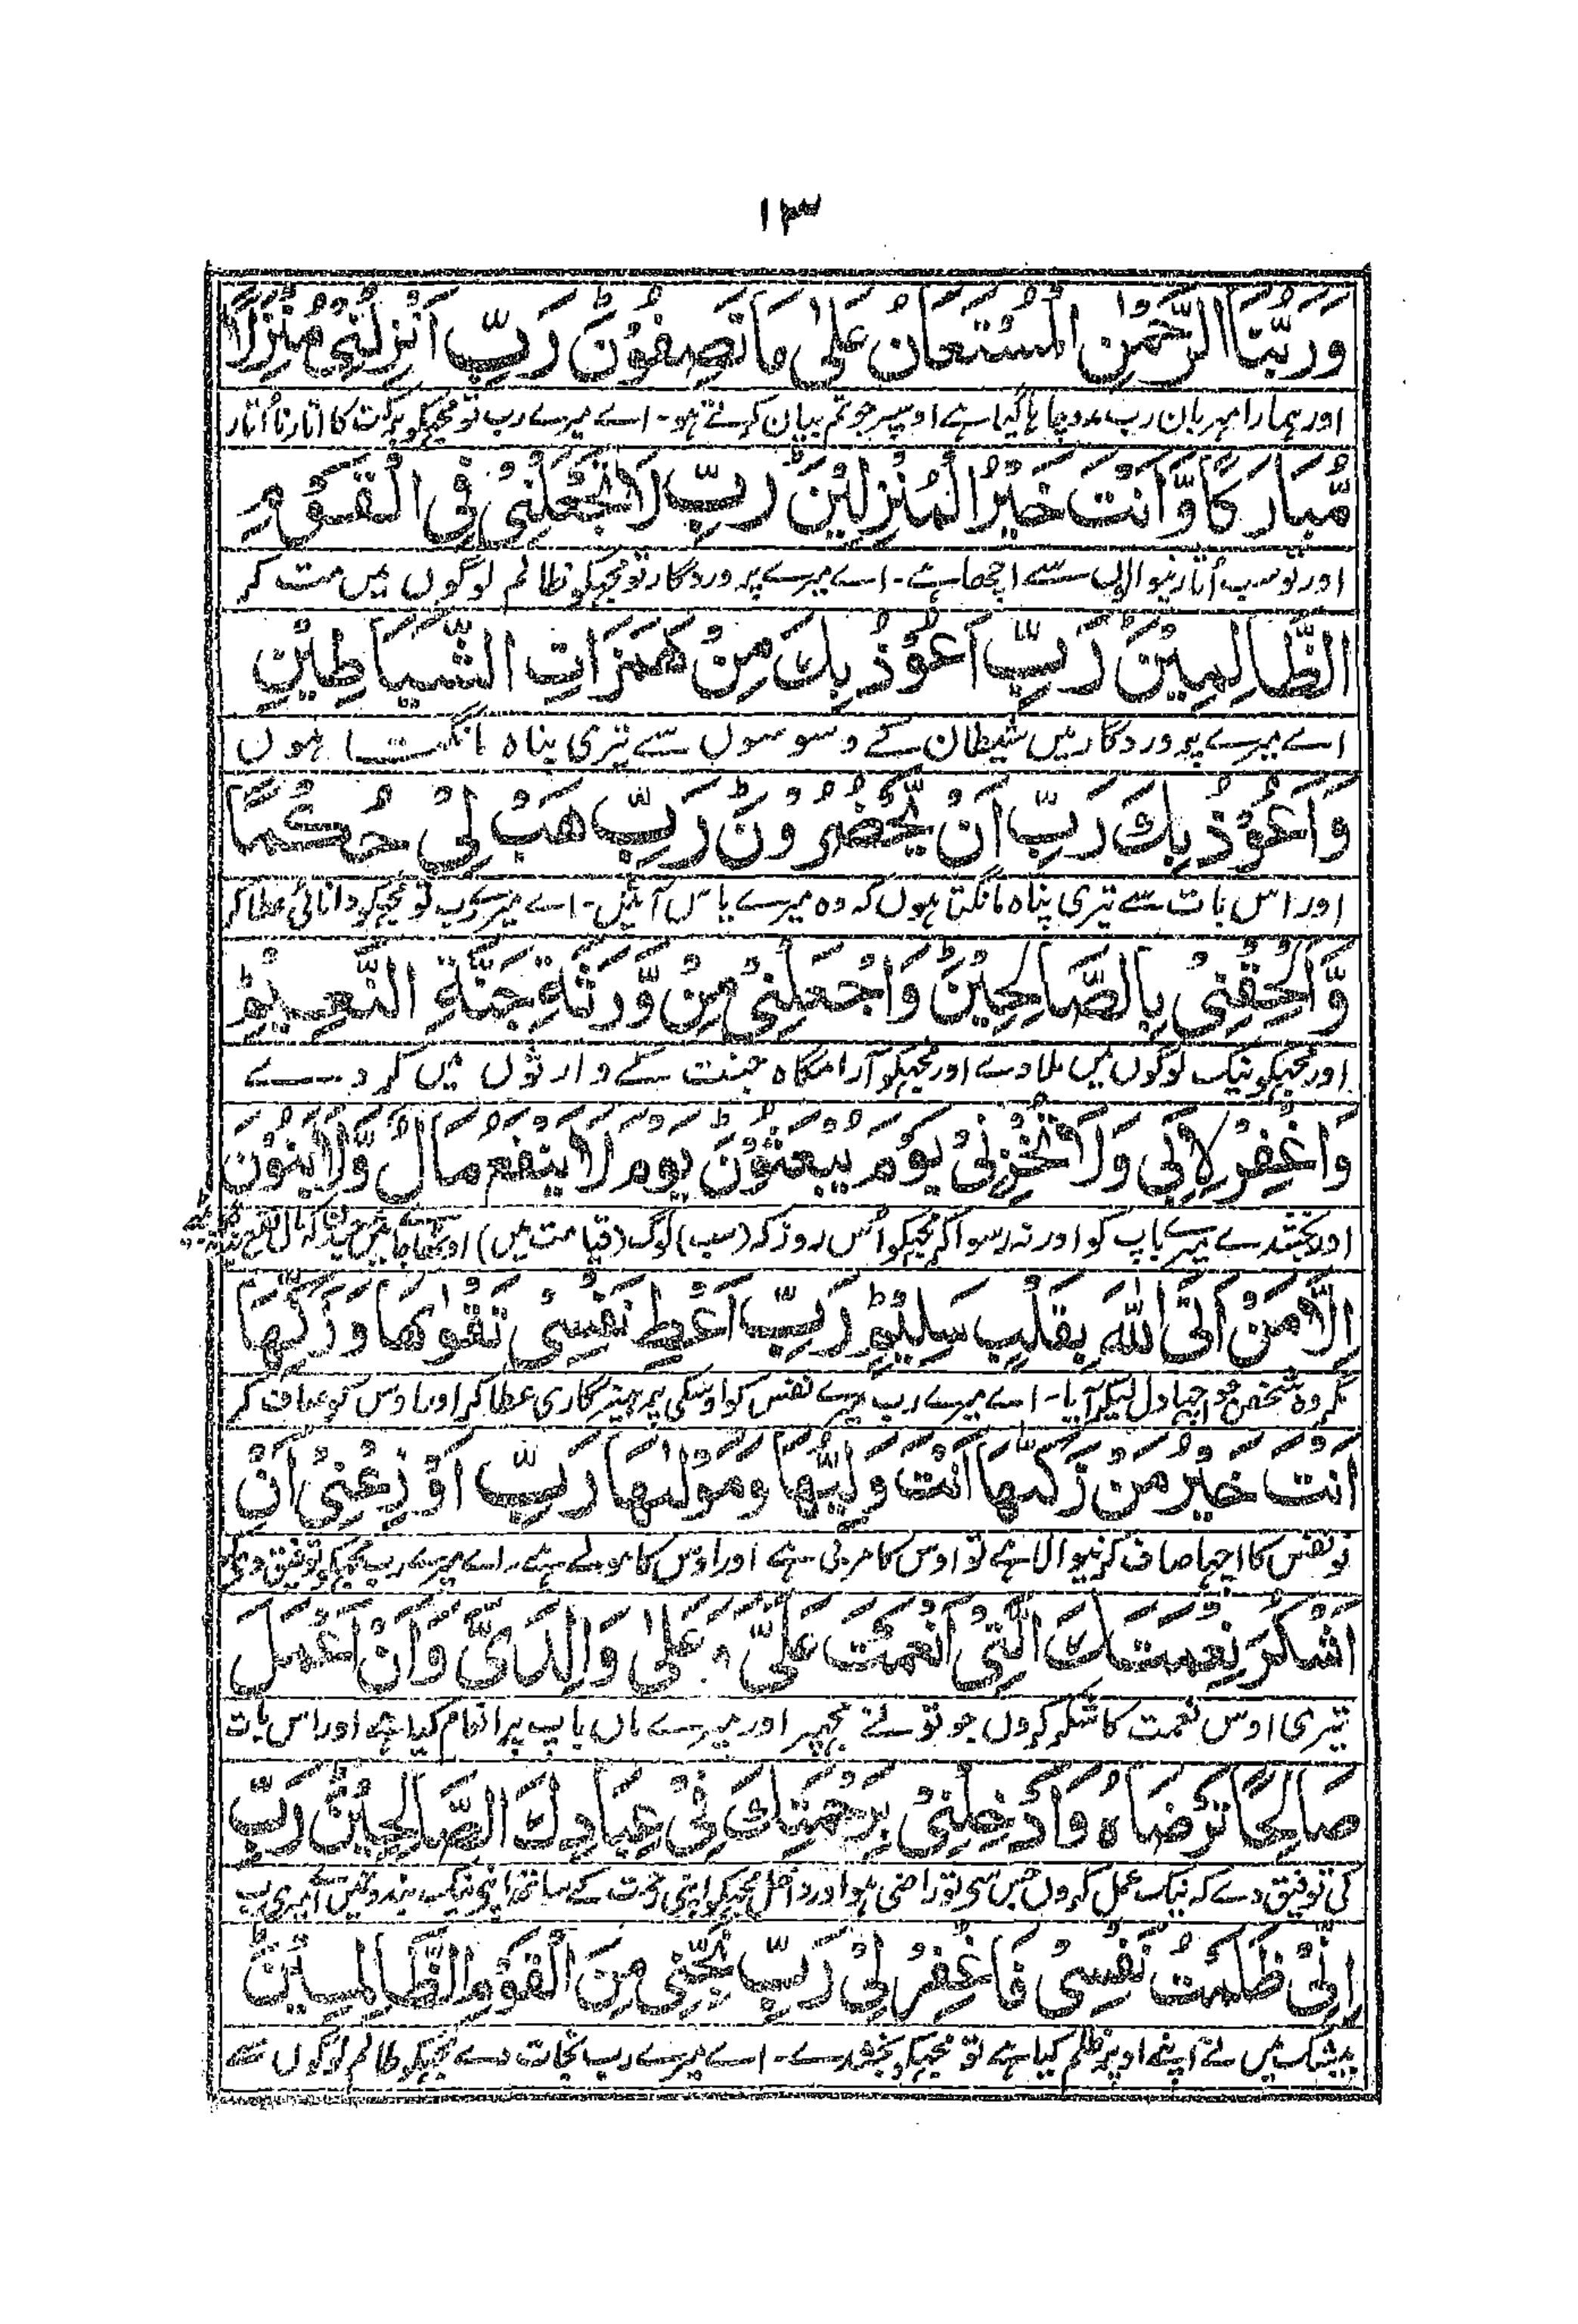 ١٣
وَرَبُّنَا الرَّحْمٰنُ الْمُسْتَعَانُ عَلٰى مَا تَصِفُوْنَ رَبِّ اَنْزِلْنِىْ مُنْزَلًا
اور ہمارا مہربان رب مدد چاہا گیا ہے اوسپر جو تم بیان کرتے ہو۔ اے میرے رب تو مجہکو برکت کا اتارنا اُتار
مُّبَارَكًا وَّاَنْتَ خَيْرُ الْمُنْزِلِيْنَ رَبِّ لَا تَجْعَلْنِىْ فِى الْقَوْمِ
اور تو سب اُتارنیوالوں سے اچھا ہے۔ اے میرے پروردگار تو مجہکو ظالم لوگوں میں مت کر
الظَّالِمِيْنَ رَبِّ اَعُوْذُ بِكَ مِنْ هَمَزَاتِ الشَّيَاطِيْنِ
اے میرے پروردگار میں شیطان کے وسوسوں سے تیری پناہ مانگتا ہوں
وَاَعُوْذُ بِكَ رَبِّ اَنْ يَّحْضُرُوْنَ رَبِّ هَبْ لِىْ حُكْمًا
اور اس بات سے تیری پناہ مانگتا ہوں کہ وہ میرے پاس آئیں۔ اے میرے رب تو مجہکو دانائی عطا کر
وَّاَلْحِقْنِىْ بِالصَّالِحِيْنَ وَاجْعَلْنِىْ مِنْ وَّرَثَةِ جَنَّةِ النَّعِيْمِ
اور مجہکو نیک لوگوں میں ملا دے اور مجہکو آرامگاہ جنت کے وارثوں میں کر دے
وَاغْفِرْ لِاَبِىْ وَلَا تُخْزِنِىْ يَوْمَ يُبْعَثُوْنَ يَوْمَ لَا يَنْفَعُ مَالٌ وَّلَا بَنُوْنَ
اور بخشدے میرے باپ کو اور نہ رسوا کر مجہکو اُس روز کہ (سب) لوگ (قیامت میں) اوٹھائے جائیں
اِلَّا مَنْ اَتَى اللّٰهَ بِقَلْبٍ سَلِيْمٍ رَبِّ اَعْطِ نَفْسِىْ تَقْوٰىهَا وَزَكِّهَا
مگر وہ شخص جو اچہا دل لیکر آیا۔ اے میرے رب میرے نفس کو اوسکی پرہیزگاری عطا کر اور اوس کو صاف کر
اَنْتَ خَيْرُ مَنْ زَكّٰىهَا اَنْتَ وَلِيُّهَا وَمَوْلٰىهَا رَبِّ اَوْزِعْنِىْ اَنْ
تو نفس کا اچہا صاف کرنیوالا ہے تو اوس کا مربی ہے اور اوس کا مولے ہے۔ اے میرے رب مجہکو توفیق دی کہ
اَشْكُرَ نِعْمَتَكَ الَّتِىْ اَنْعَمْتَ عَلَىَّ وَعَلٰى وَالِدَىَّ وَاَنْ اَعْمَلَ
تیری اوس نعمت کا شکر کروں جو تو نے مجہپر اور میرے ماں باپ پر انعام کیا ہے اور اس بات
صَالِحًا تَرْضَاهُ وَاَدْخِلْنِىْ بِرَحْمَتِكَ فِىْ عِبَادِكَ الصَّالِحِيْنَ رَبِّ
کی توفیق دے کہ نیک عمل کروں جس سی تو راضی ہو اور داخل مجہکو اپنی رحمت کے ساتھ اپنی نیک بندونمیں
اِنِّىْ ظَلَمْتُ نَفْسِىْ فَاغْفِرْ لِىْ رَبِّ نَجِّنِىْ مِنَ الْقَوْمِ الظَّالِمِيْنَ
بیشک میں نے اپنے اوپر ظلم کیا ہے تو مجہکو بخشدے۔ اے میرے رب نجات دے مجہکو ظالم لوگوں سے